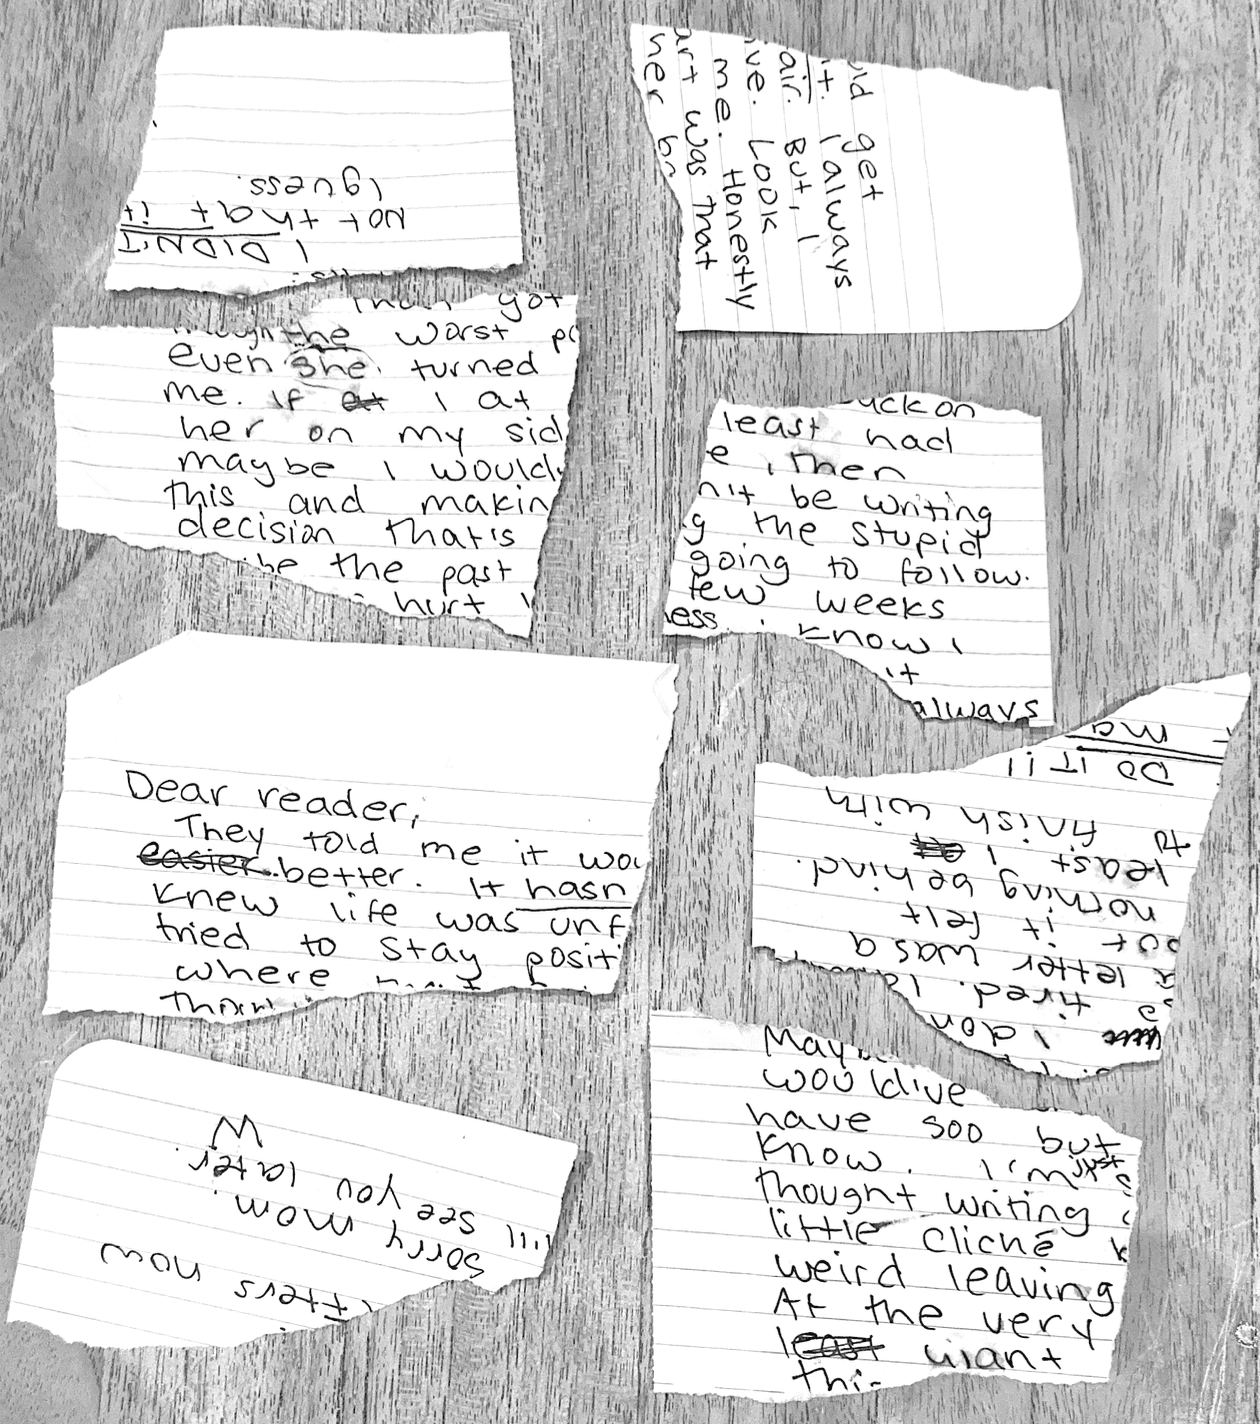 I DIDN'T
Not that it
I guess.
uld get
't. I always
air. But, I
ive. Look
me. Honestly
art was that
her br
than got
the worst pa
even she turned
me. If I at
her on my sid
maybe I would
this and makin
decision that's
be the past
hurt
uck on
least had
e, then
n't be writing
g the stupid
going to follow.
few weeks
ness. I know I
it
always
Dear reader,
They told me it wou
easier better. It hasn
knew life was unf
tried to stay posit
where
I don
so tired. I
a letter was a
but it felt
nothing behind.
least I
to finish with
DO IT!!
ma
tters now
Sorry mom.
I'll see you later.
W
would've
have soo but
know. I'm just s
thought writing
little cliché
weird leaving
At the very
least want